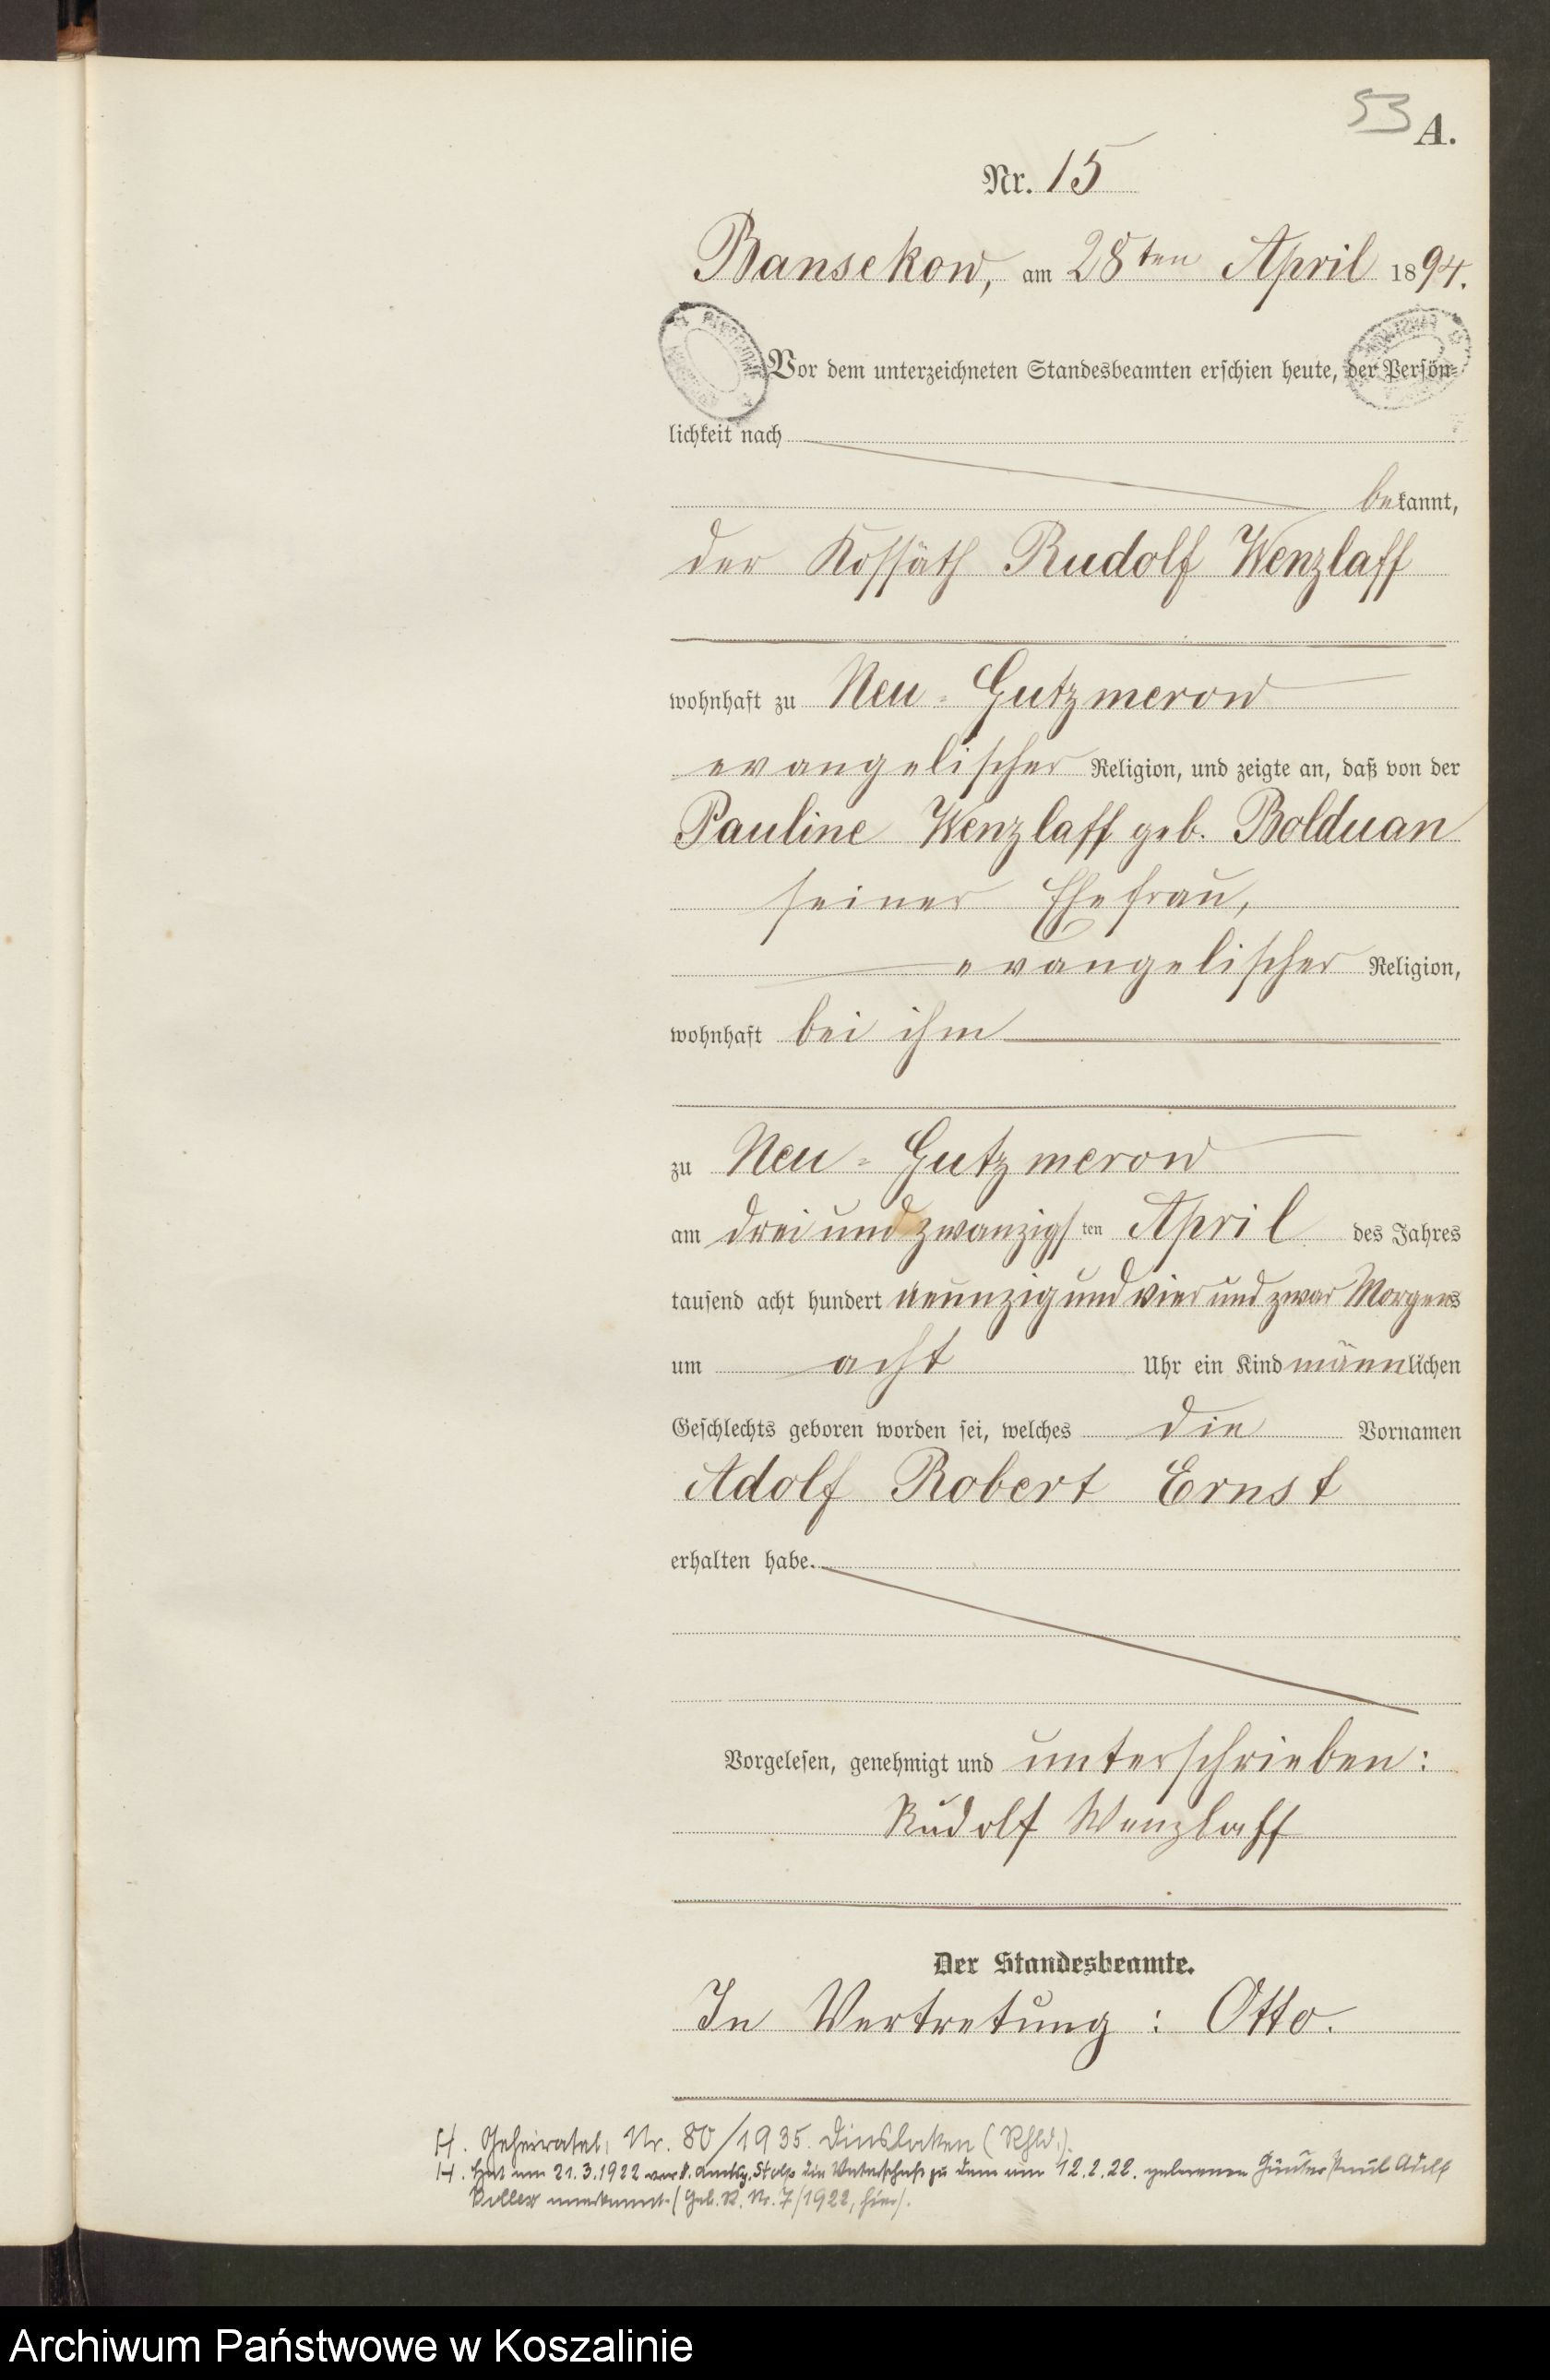 53 A.
Nr. 15
Bansekow, am 28ten April 1894.
Vor dem unterzeichneten Standesbeamten erschien heute, der Persön=
lichkeit nach
bekannt,
der Kossäth Rudolf Wenzlaff
wohnhaft zu Neu-Gutzmerow
evangelischer Religion, und zeigte an, daß von der
Pauline Wenzlaff geb. Bolduan
seiner Ehefrau,
evangelischer Religion,
wohnhaft bei ihm
zu Neu-Gutzmerow
am drei und zwanzigsten April des Jahres
tausend acht hundert neunzig und vier und zwar Morgens
um acht Uhr ein Kind männlichen
Geschlechts geboren worden sei, welches die Vornamen
Adolf Robert Ernst
erhalten habe.
Vorgelesen, genehmigt und unterschrieben:
Rudolf Wenzlaff
Der Standesbeamte.
In Vertretung: Otto.
H. Geheiratet, Nr. 80/1935. Dinslaken (Rhld.).
H. Hat am 21.3.1922 vor d. Amtsg. Stolp die Vaterschaft zu dem am 12.2.22. geborenen Günter Paul Adolf
anerkannt. (Geb. R. Nr. 7/1922, hier).
Archiwum Państwowe w Koszalinie